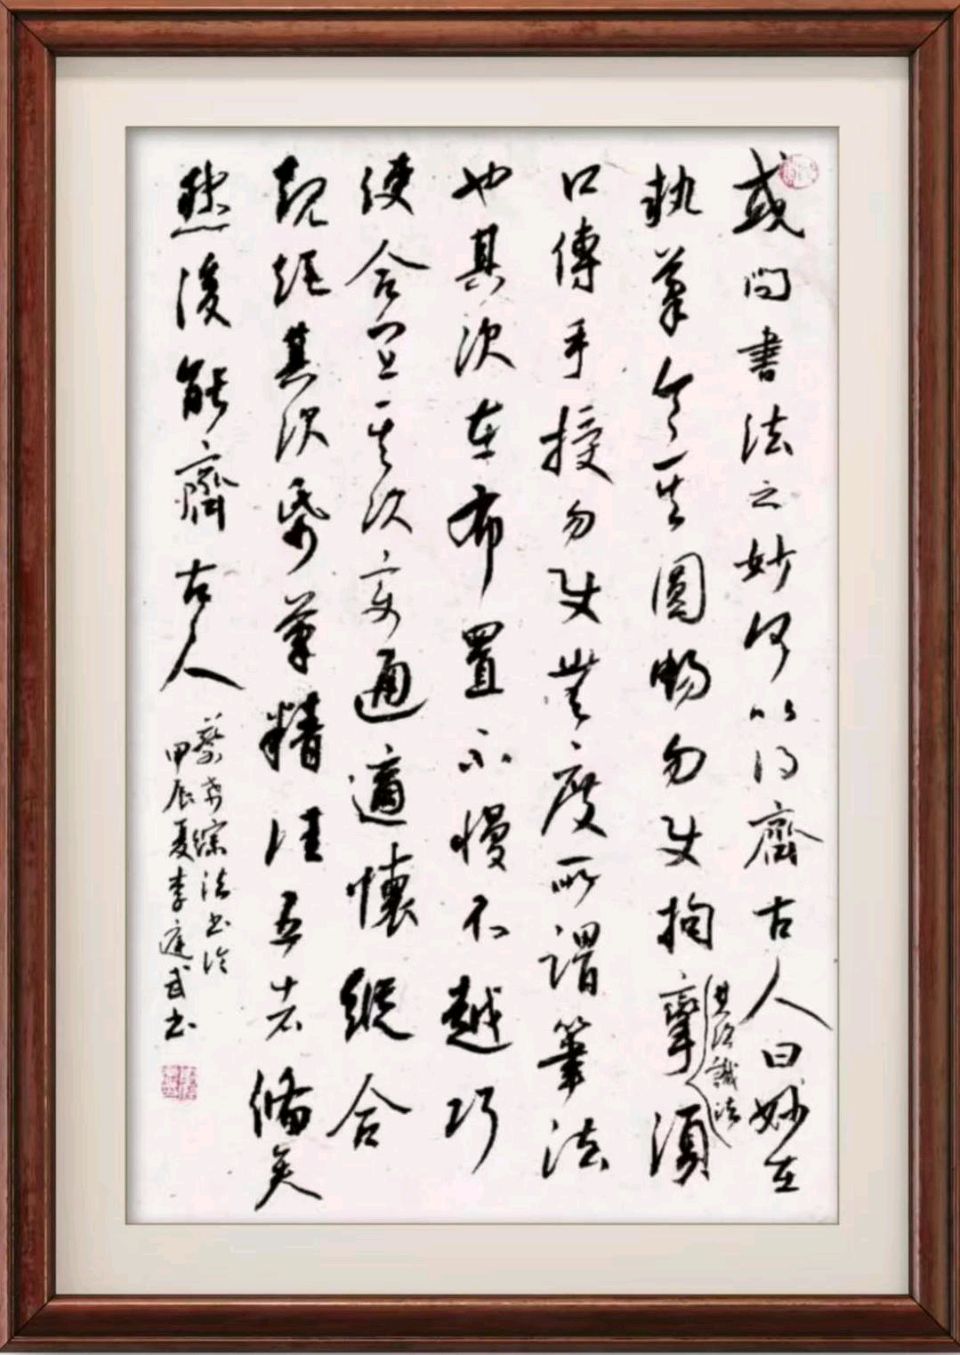 或問書法之妙何以得齊古人曰妙在
執筆令其圓暢勿使拘攣其次識法須
口傳手授勿使無度所謂筆法
也其次在布置不慢不越巧
使合宜其次变通適懷縱合
規矩其次帋筆精佳五者備矣
然後能齊古人
蔡希綜法书论
甲辰夏李庭武书